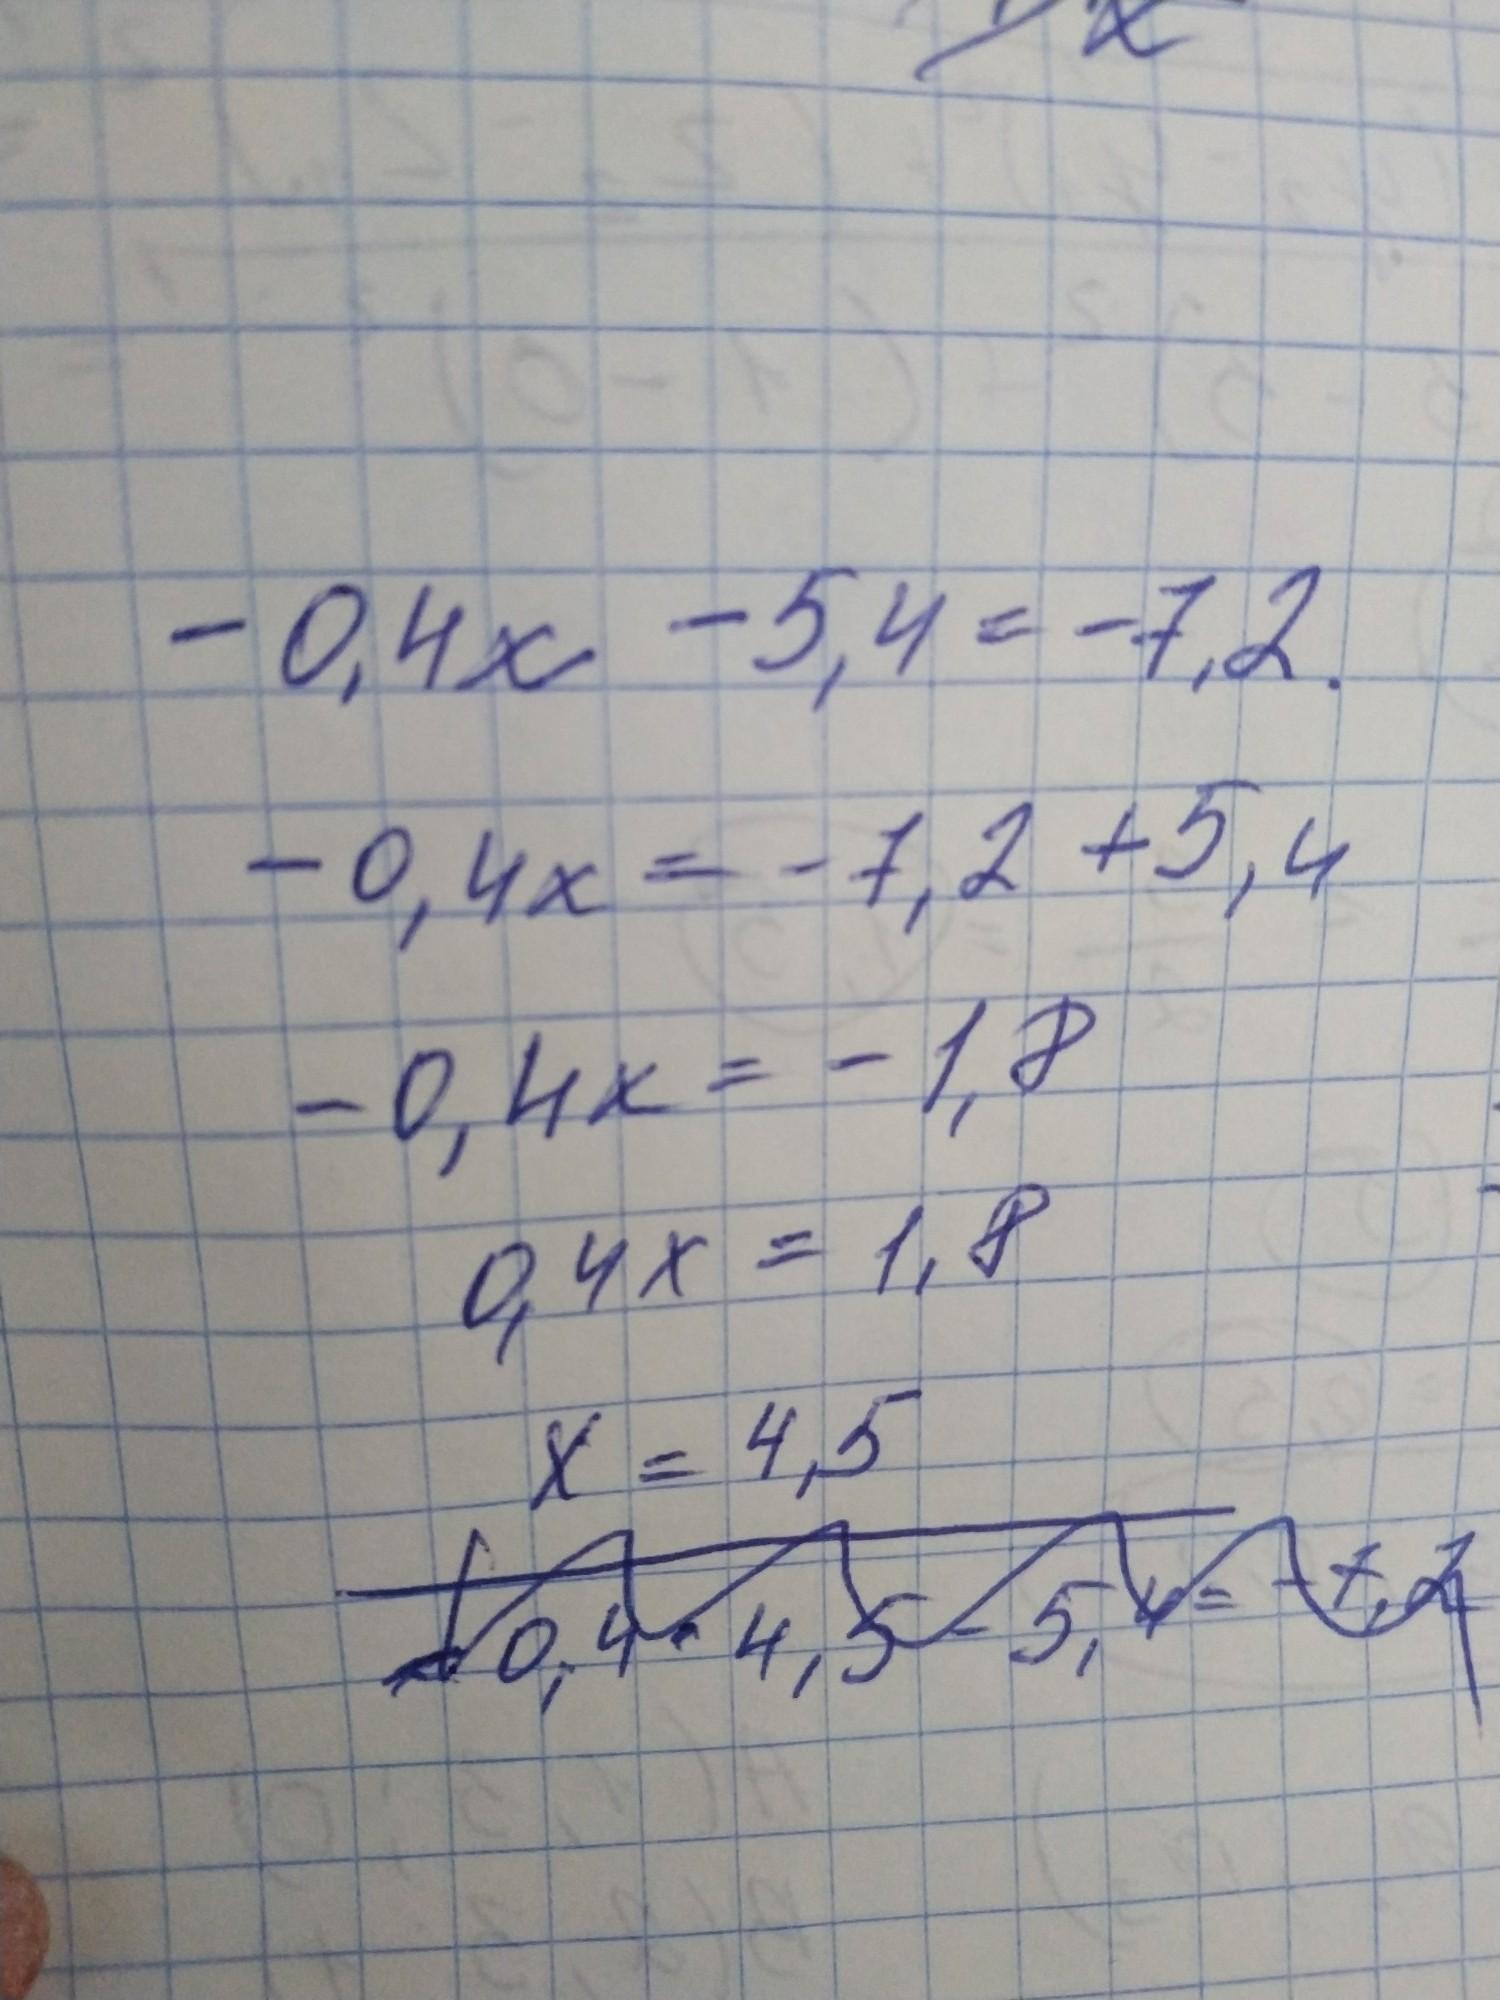 x
- 0,4x - 5,4 = -7,2.
- 0,4x = - 7,2 + 5,4
- 0,4x = - 1,8
0,4x = 1,8
x = 4,5
0,4 · 4,5 - 5,4 = -7,2